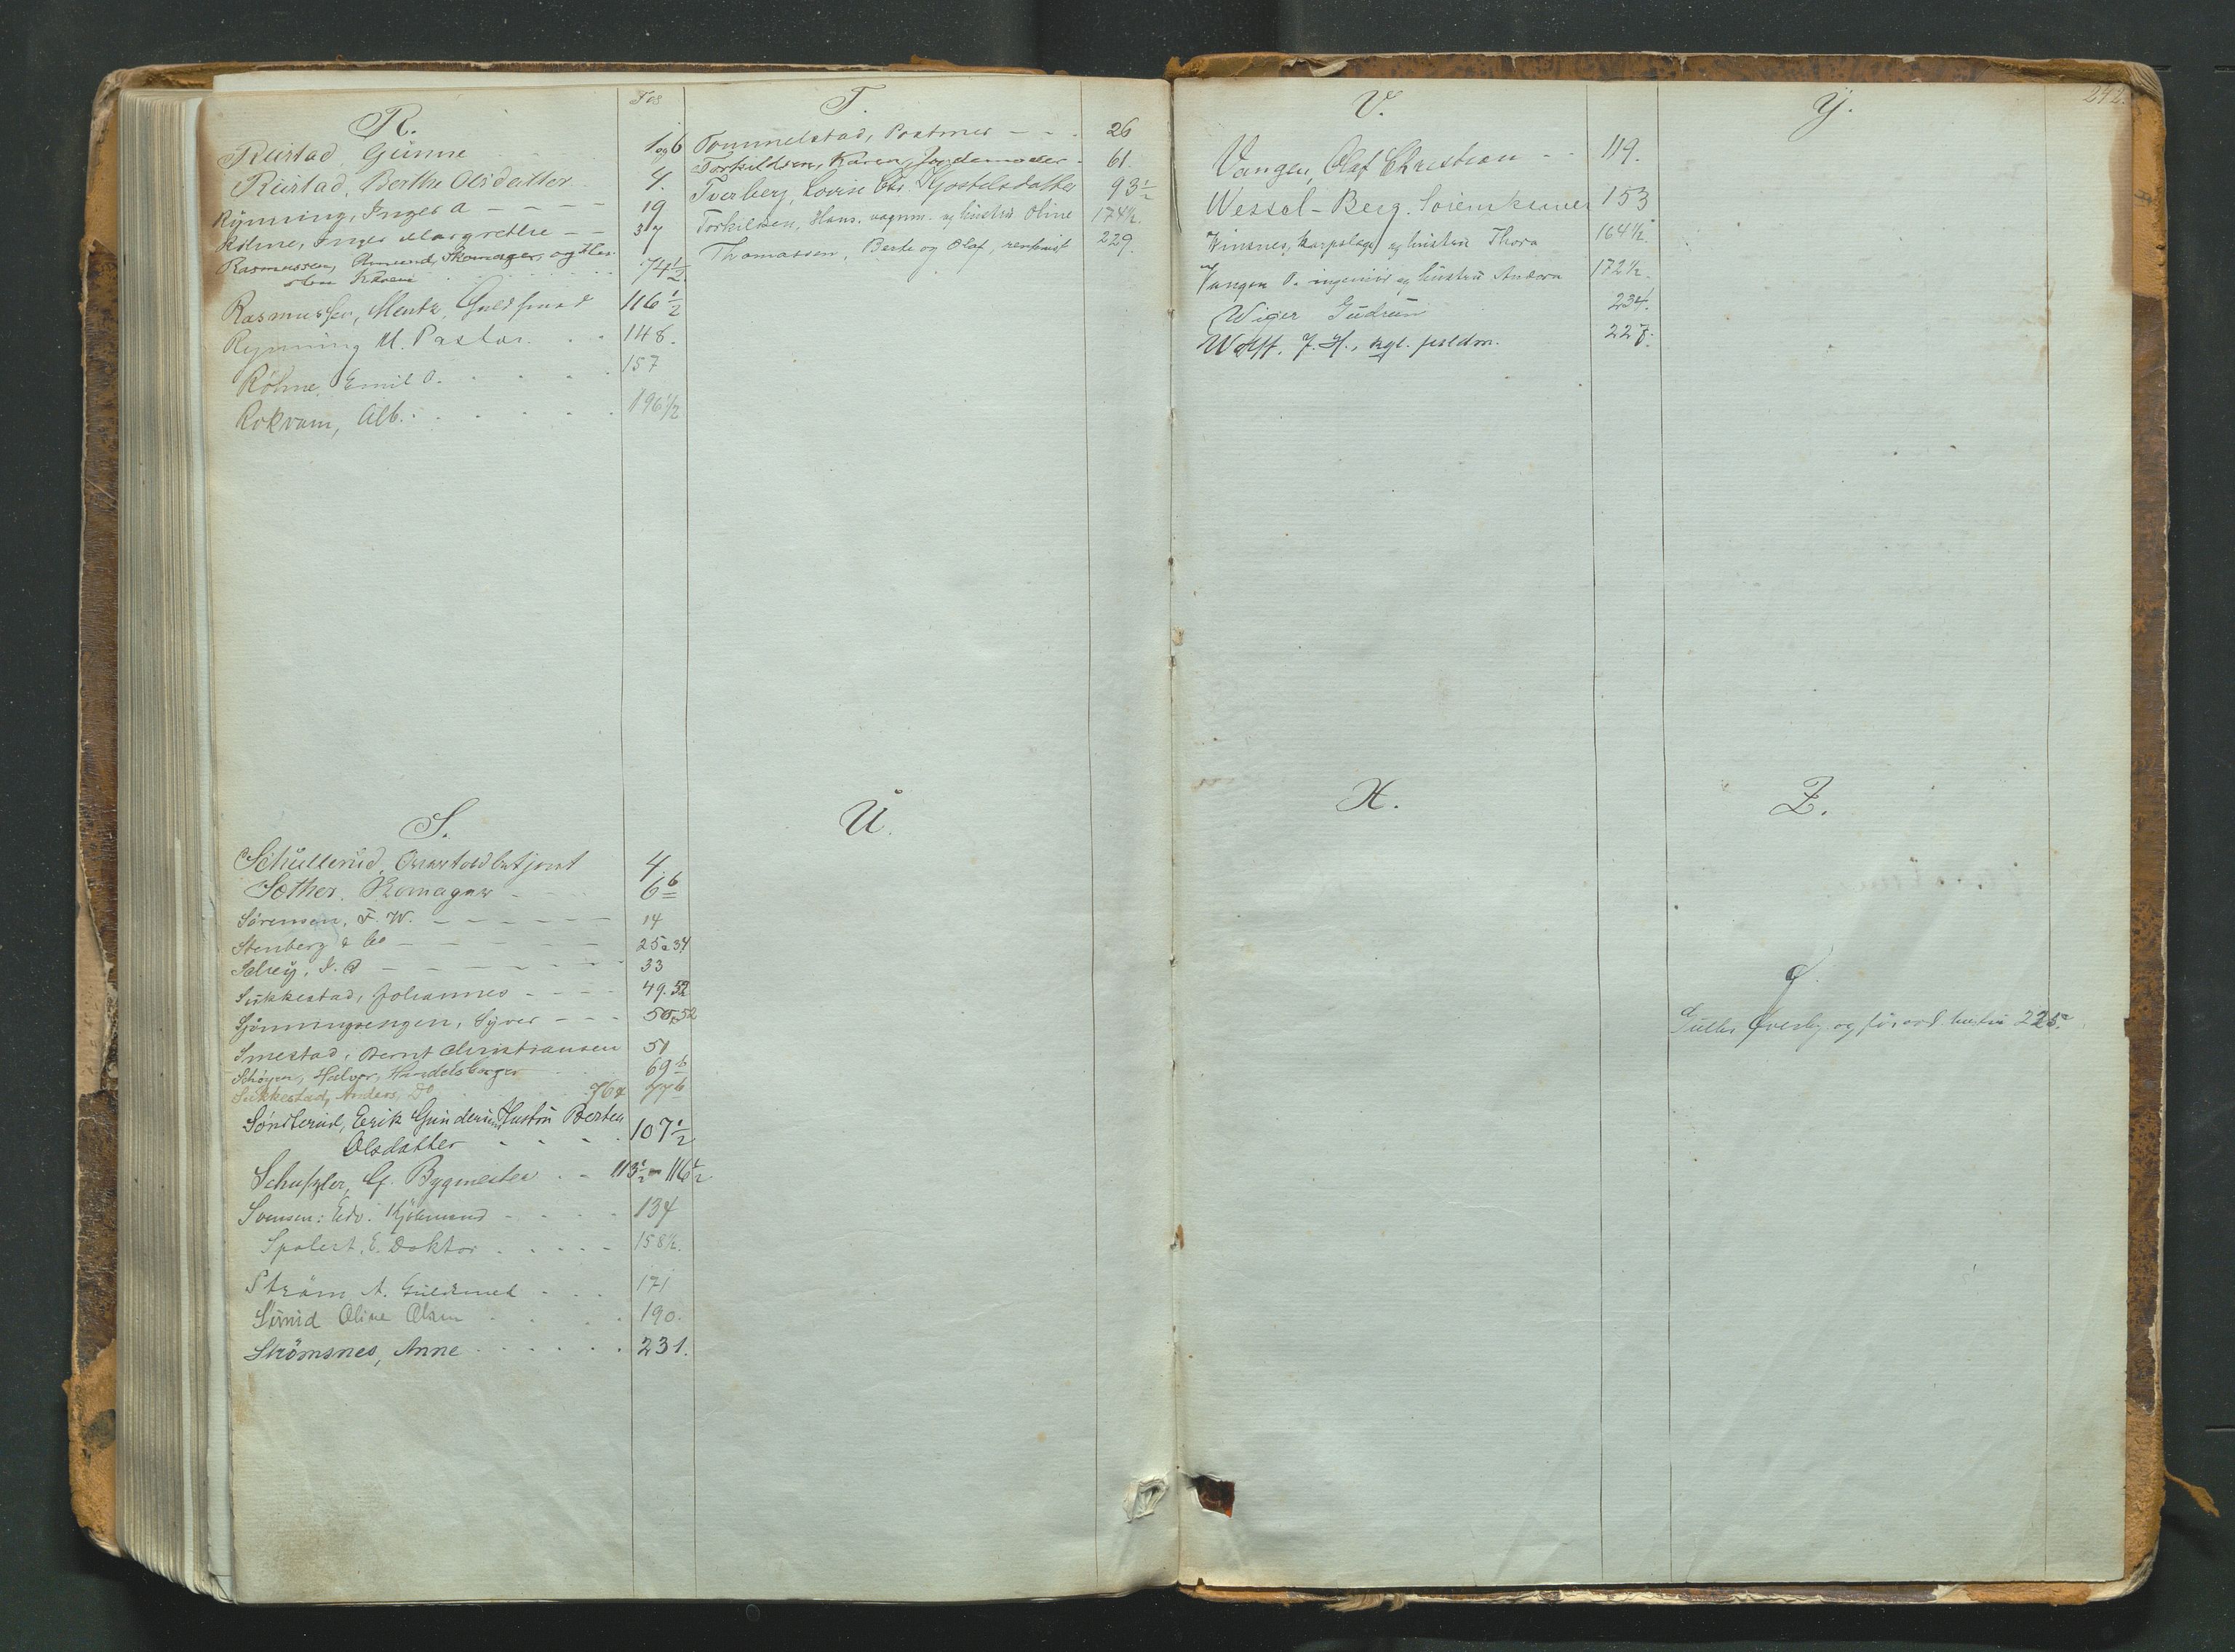 R.
Fos
Rustad, Gunne 1 og 6
Rustad, Berthe Olsdatter 4.
Rynning, Inger A - - - - 19
Röhne, Inger Margrethe - - 37
Rasmussen, Amund, Skomager, og
Karen 74½
Rasmussen, Mentz, Guldsmed 116½
Rynning M. Pastor. 148.
Röhne, Emil O. 157
Rokvam, Alb. 196½
S.
Schullerud, Overtoldbetjent 4
Sæther, Skomager 6 b
Sörensen, F. W. - - - - - - 14
Stenberg & Co - - - - - 25 & 34
Selsey, J. A - - - - - - 33
Sukkestad, Johannes - - - - 49. 52
Gjönningsengen, Syver - - - 50, 52
Smestad, Bernt Christiansen 51
Schöyen, Halvor, Handelsborger 69 b
Sukkestad, Anders, Do 76 & 77 b
Söndlerud, Eerik Gundersen Hustru Berthe
Olsdatter - - - 107½
Schüssler, G. Bygmester - - 113½ - 116½
Svensen: Edv. Kjöbmand - - - - 134
Spolert, E. Doktor 158½.
Ström A. Guldsmed 171
Oline Olsen 190.
Strömsnes, Anne 231.
T.
Tommelstad, Postmes - - 26
Torkildsen, Karen, Jordemoder - 61
Tverberg, Lovise Chr. Kjostelsdatter 93½
Torkildsen, Hans. vognm. og hustru Oline 174½.
Thomassen, Berte og Olaf, rentenist 229.
U.
V.
Vangen, Olaf Christian - - 119.
Wessel-Berg. Sorenskriver 153
Vinsnes, korpslæge, og hustru Thora 164½.
Vangen O. ingeniör og hustru Andora 172½.
Wiger Gudrun 234.
Wolff, J. H., kgl. fuldm. 227.
X.
Y.
242.
Z.
Ø.
Øverby og hustru 225.